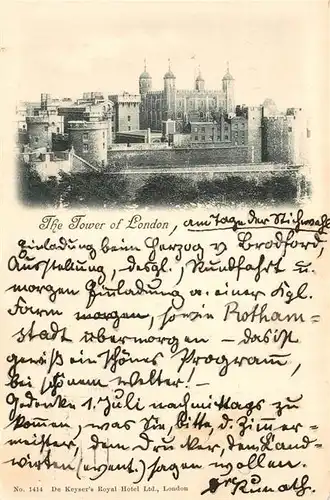 The Tower of London, am Tage der Stichwahl
Einladung beim Herzog v. Bedford,
Ausstellung, desgl., Rundfahrt u.
morgen Einladung a. einer Kgl.
Farm morgen, sowie Rotham-
stadt übermorgen – das ist
gewiß ein schönes Programm,
bei schönem Wetter. –
Gedenke 1. Juli nachmittags zu
kommen, was Sie, bitte, d. Zimmer-
meister, dem Drucker, dem Land-
wirten (event.) sagen wollen.
No. 1414 De Keyser's Royal Hotel Ltd., London